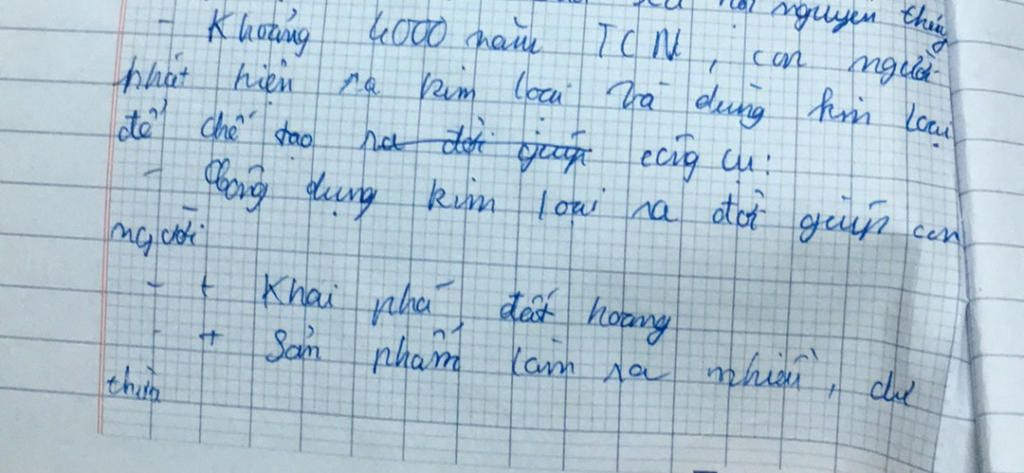 nguyên thủy
- Khoảng 4000 năm TCN, con người
phát hiện ra kim loại và dùng kim loại
để chế tạo ra đời giúp công cụ:
- Công dụng kim loại ra đời giúp con
người
- + Khai phá đất hoang
- + Sản phẩm làm ra nhiều, dư
thừa